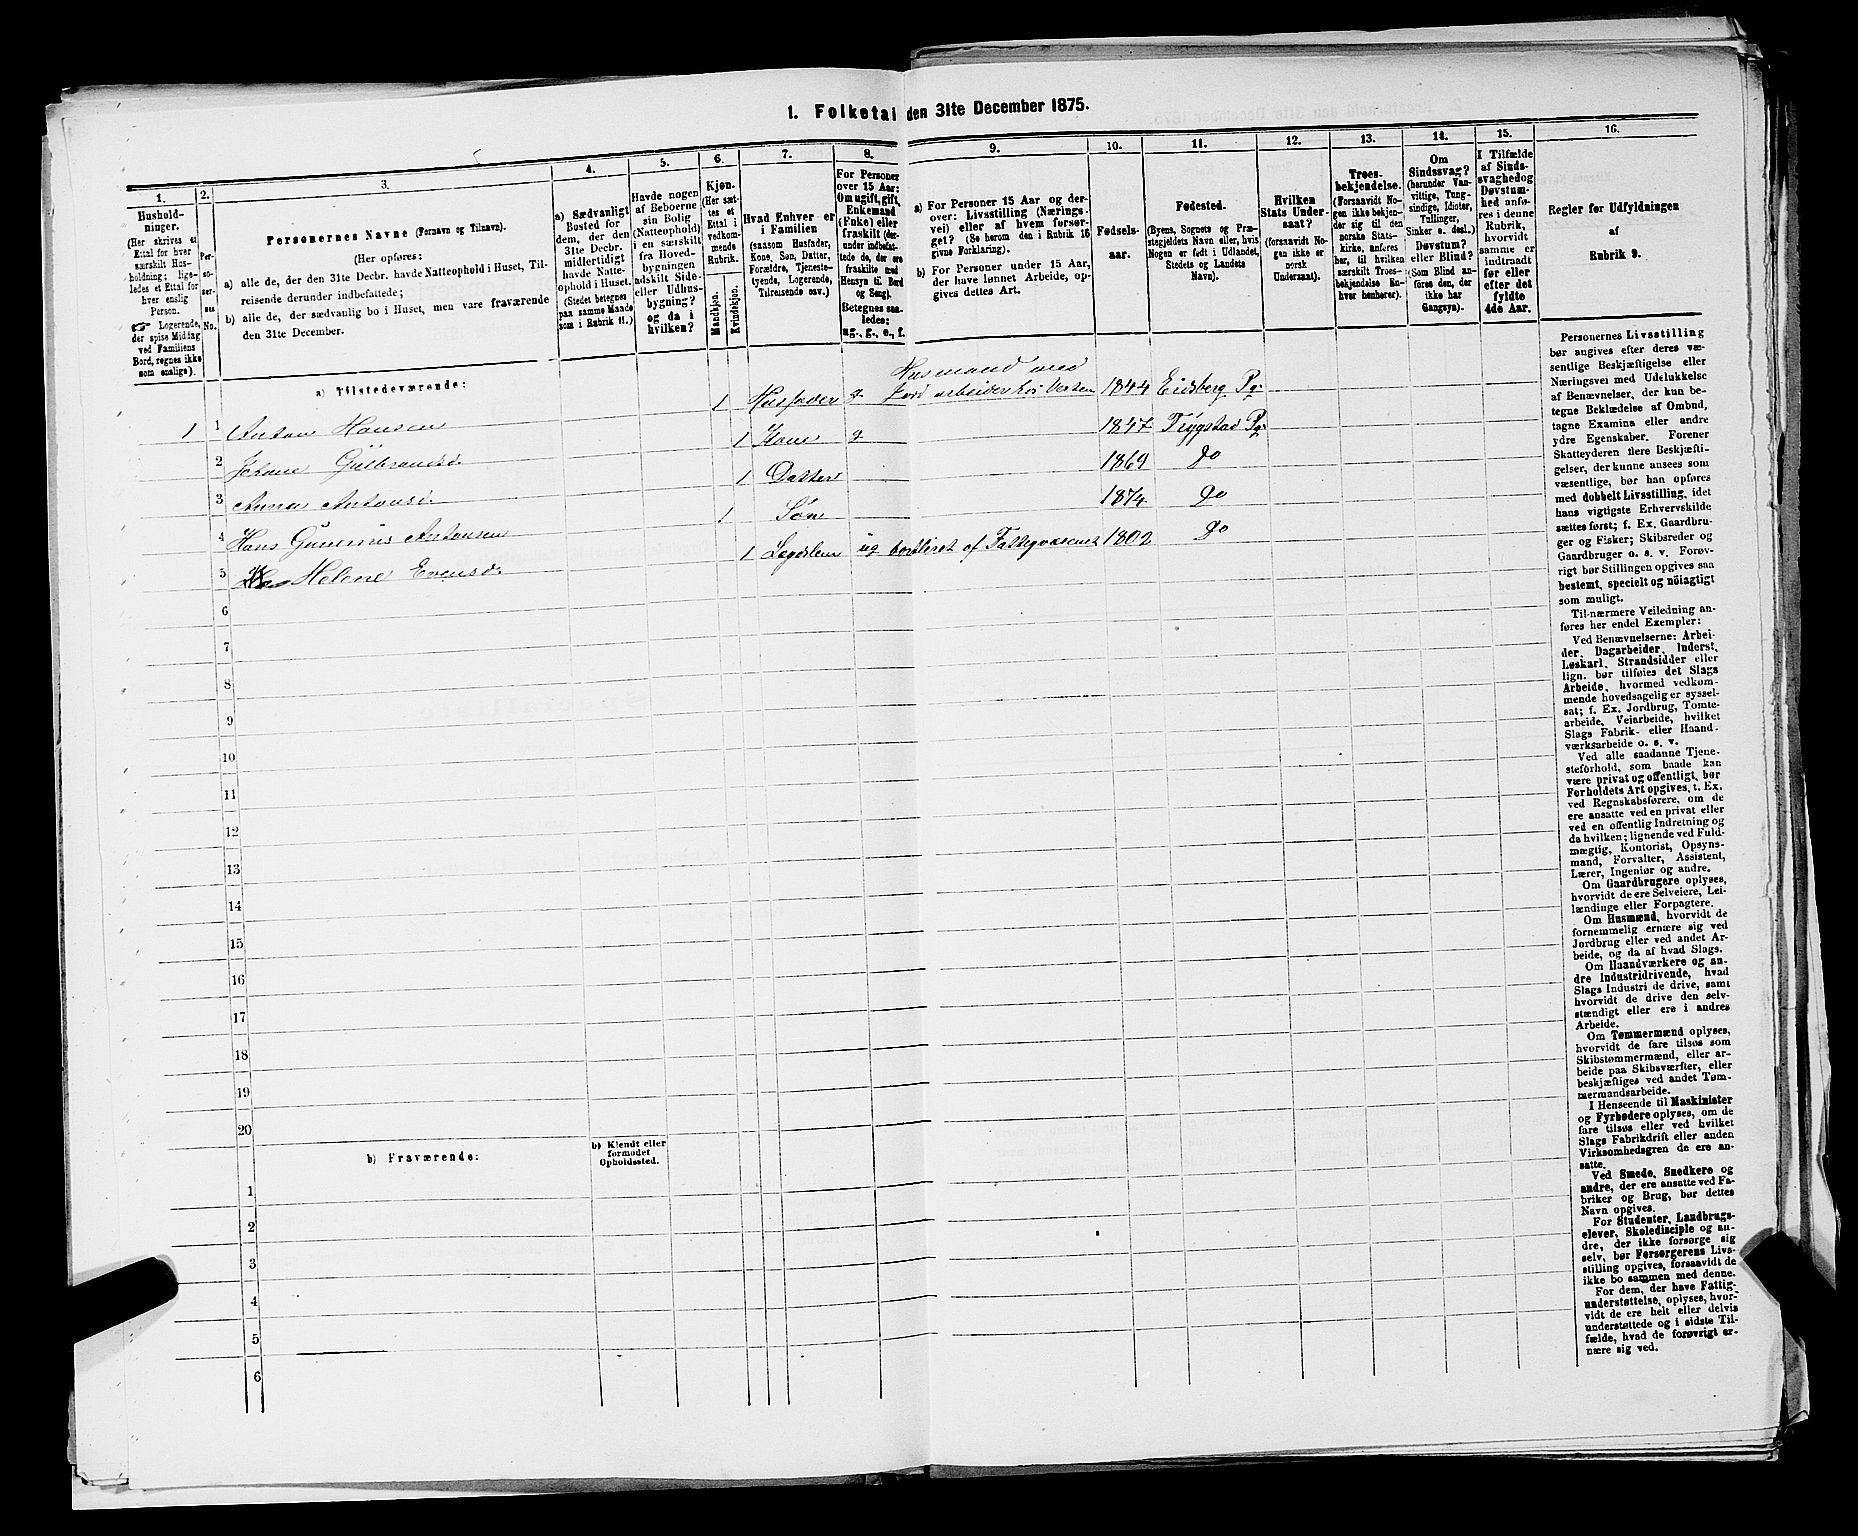 1. Folketal den 31te December 1875.
1. 2. 3. 4. 5. 6. 7. 8. 9. 10. 11. 12. 13. 14. 15. 16.
Hushold-
ninger.
(Her skrives et
Ettal for hver
særskilt Hus-
holdning; lige-
ledes et Ettal for
hver enslig
Person.
☞ Logerende,
der spise Middag
ved Familiens
Bord, regnes ikke
som enslige).
Per-
so-
ner-
nes
No.
Personernes Navne (Fornavn og Tilnavn).
(Her opføres:
a) alle de, der den 31te Decbr. havde Natteophold i Huset, Til-
reisende derunder indbefattede;
b) alle de, der sædvanlig bo i Huset, men vare fraværende
den 31te December.
a) Sædvanligt
Bosted for
dem, der den
31te Decbr.
midlertidigt
havde Natte-
ophold i Huset.
(Stedet betegnes
paa samme Maade
som i Rubrik 11.)
Havde nogen
af Beboerne
sin Bolig
(Natteophold)
i en særskilt
fra Hoved-
bygningen
adskilt Side-
eller Udhus-
bygning?
og da i
hvilken?
Kjøn.
(Her sæt-
tes et
Ettal i
vedkom-
mende
Rubrik.
Mandkjøn.
Kvindekjøn.
Hvad Enhver er
i Familien
(saasom Husfader,
Kone, Søn, Datter,
Forældre, Tjeneste-
tyende, Logerende,
Tilreisende osv.)
For Personer
over 15 Aar:
Om ugift, gift,
Enkemand
(Enke) eller
fraskilt (der-
under indbefat-
tede de, der ere
fraskilte med
Hensyn til Bord
og Seng).
Betegnes saa-
ledes:
ug., g., e., f.
a) For Personer 15 Aar og der-
over: Livsstilling (Nærings-
vei) eller af hvem forsør-
get? (Se herom den i Rubrik 16
givne Forklaring).
b) For Personer under 15 Aar,
der have lønnet Arbeide, op-
gives dettes Art.
Fødsels-
aar.
Fødested.
(Byens, Sognets og Præ-
stegjeldets Navn eller, hvis
Nogen er født i Udlandet,
Stedets og Landets
Navn).
Hvilken
Stats Under-
saat?
(forsaavidt No-
gen ikke er
norsk
Undersaat).
Troes-
bekjendelse.
(Forsaavidt No-
gen ikke bekjen-
der sig til den
norske Stats-
kirke, anføres
her, til hvilken
særskilt Troes-
bekjendelse En-
hver henhører).
Om
Sindssvag?
(herunder Van-
vittige, Tung-
sindige, Idioter,
Tullinger,
Sinker o. desl.)
Døvstum?
eller Blind?
(Som Blind an-
føres den, der
ikke har
Gangsyn).
I Tilfælde
af Sinds-
svaghed og
Døvstum-
hed anfø-
res i denne
Rubrik,
hvorvidt
samme er
indtraadt
før eller
efter det
fyldte
4de Aar.
Regler før Udfyldningen
af
Rubrik 9.
a) Tilstedeværende:
1 1 Anton Hansen 1 Husfader g Husmand med
Jord arbeider hos Verten 1844 Eidsberg Pg:
2 Johane Gulbrandsd. 1 Kone g 1847 Trygstad Pg:
3 Anna Antonsd. 1 Datter 1869 do
4 Hans Antonsen 1 Søn 1874 do
5 Helene Evensd. 1 Lægdslem ug bortliret af Fattigvæsenet 1802 do
6
7
8
9
10
11
12
13
14
15
16
17
18
19
20
b) Fraværende:
b) Kjendt eller
formodet
Opholdssted.
1
2
3
4
5
6
Personernes Livsstilling
bør angives efter deres væ-
sentlige Beskjæftigelse eller
Næringsvei med Udelukkelse
af Benævnelser, der kun be-
tegne Beklædelse af Ombud,
tagne Examina eller andre
ydre Egenskaber. Forener
Skatteyderen flere Beskjæfti-
gelser, der kunne ansees som
væsentlige, bør han opføres
med dobbelt Livsstilling, idet
hans vigtigste Erhvervskilde
sættes først; f. Ex. Gaardbru-
ger og Fisker; Skibsreder og
Gaardbruger o. s. v. Forøv-
rigt bør Stillingen opgives saa
bestemt, specielt og nöiagtigt
som muligt.
Til nærmere Veiledning an-
føres her endel Exempler:
Ved Benævnelserne: Arbei-
der, Dagarbeider, Inderst,
Løskarl, Strandsidder eller
lign. bør tilføies det Slags
Arbeide, hvormed vedkom-
mende hovedsagelig er syssel-
sat; f. Ex. Jordbrug, Tomte-
arbeide, Veiarbeide, hvilket
Slags Fabrik- eller Haand-
værksarbeide o. s. v.
Ved alle saadanne Tjene-
steforhold, som baade kan
være privat og offentligt, bør
Forholdets Art opgives, t. Ex.
ved Regnskabsførere, om de
ere ansatte ved en privat eller
ved en offentlig Indretning og
da hvilken; lignende ved Fuld-
mægtig, Kontorist, Opsyns-
mand, Forvalter, Assistent,
Lærer, Ingeniør og andre.
Om Gaardbrugere oplyses,
hvorvidt de ere Selveiere, Lei-
lændinge eller Forpagtere.
Om Husmænd, hvorvidt de
fornemmelig ernære sig ved
Jordbrug eller ved andet Ar-
beide, og da af hvad Slags.
Om Haandværkere og an-
dre Industridrivende, hvad
Slags Industri de drive, samt
hvorvidt de drive den selv-
stændigt eller ere i andres
Arbeide.
Om Tømmermænd oplyses,
hvorvidt de fare tilsøs som
Skibstømmermænd, eller ar-
beide paa Skibsværfter, eller
beskjæftiges ved andet Tøm-
mermandsarbeide.
I Henseende til Maskinister
og Fyrbødere oplyses, om de
fare tilsøs eller ved hvilket
Slags Fabrikdrift eller anden
Virksomhedsgren de ere an-
satte.
Ved Smede, Snedkere og
andre, der ere ansatte ved Fa-
briker og Brug, bør dettes
Navn opgives.
For Studenter, Landbrugs-
elever, Skoledisciple og an-
dre, der ikke forsørge sig
selv, bør Forsørgerens Livs-
stilling opgives, forsaavidt de
ikke bo sammen med denne.
For dem, der have Fattig-
understøttelse, oplyses, hvor-
vidt de ere helt eller delvis
understøttede og i sidste Til-
fælde, hvad de forøvrigt er-
nære sig ved.